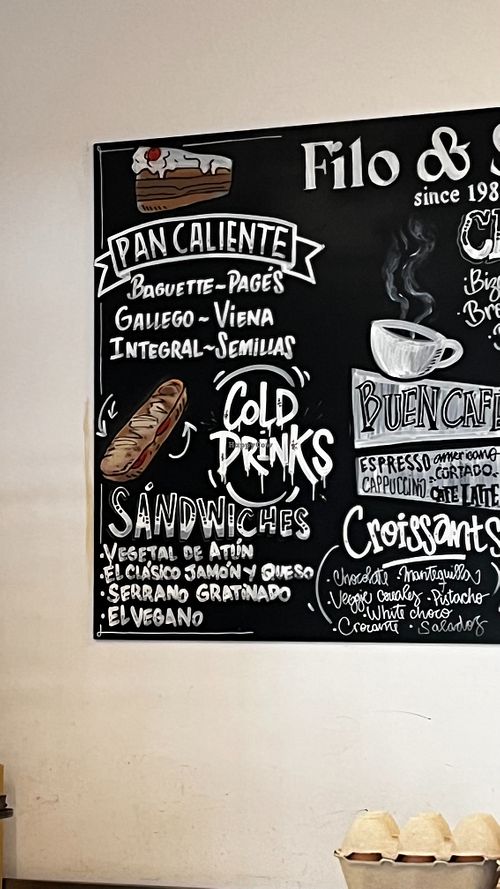 Filo &
since 198
PAN CALIENTE
BAGUETTE~PAGÉS
GALLEGO~VIENA
INTEGRAL~SEMILLAS
COLD
DRINKS
SÁNDWICHES
VEGETAL DE ATÚN
·EL CLÁSICO JAMÓN Y QUESO
·SERRANO GRATINADO
·EL VEGANO
BUEN CAFE
ESPRESSO americano
CAPPUCCINO CORTADO
CAFE LATTE
Croissants
·Chocolate ·Mantequilla
·Veggie cereales ·Pistacho
·White choco
·Crocante ·Salados
·Biz
Bro